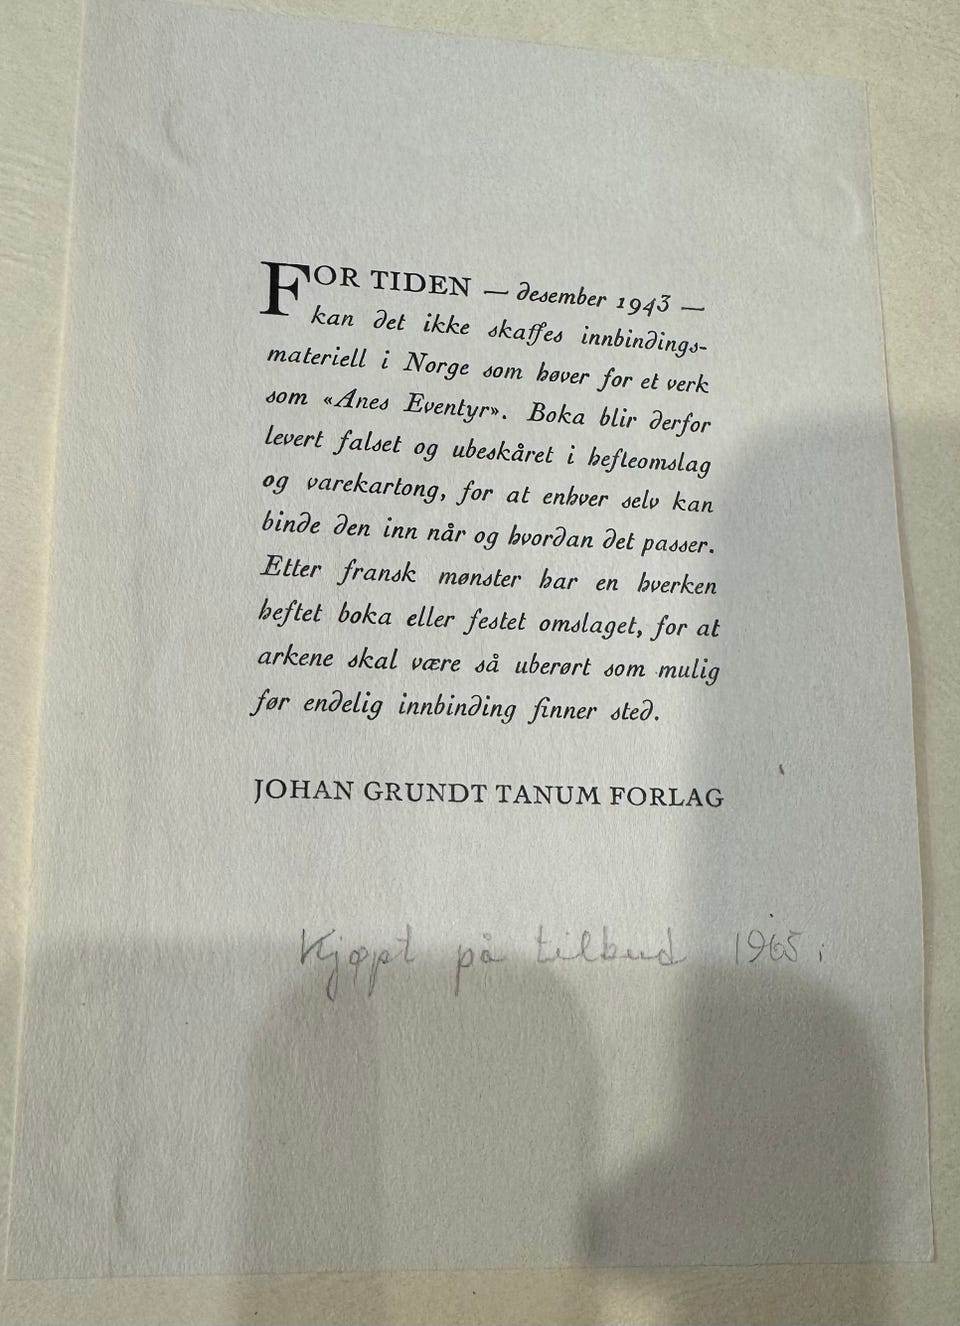 FOR TIDEN — desember 1943 —
kan det ikke skaffes innbindings-
materiell i Norge som høver for et verk
som «Anes Eventyr». Boka blir derfor
levert falset og ubeskåret i hefteomslag
og varekartong, for at enhver selv kan
binde den inn når og hvordan det passer.
Etter fransk mønster har en hverken
heftet boka eller festet omslaget, for at
arkene skal være så uberørt som mulig
før endelig innbinding finner sted.
JOHAN GRUNDT TANUM FORLAG
Kjøpt på tilbud 1965 i